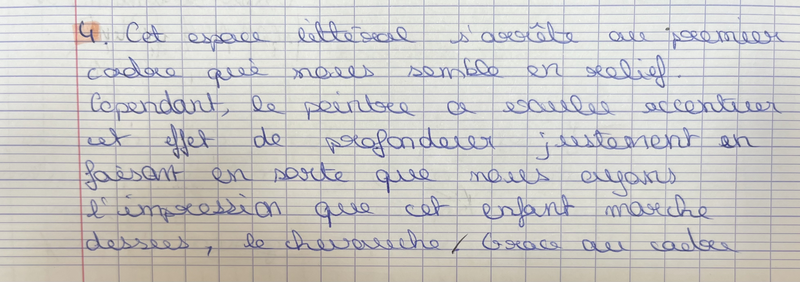 4. Cet espace littéral s'arrête au premier
cadre qui nous semble en relief.
Cependant, le peintre a voulu accentuer
cet effet de profondeur justement en
faisant en sorte que nous ayons
l'impression que cet enfant marche
dessus, le chevauche / Grace au cadre